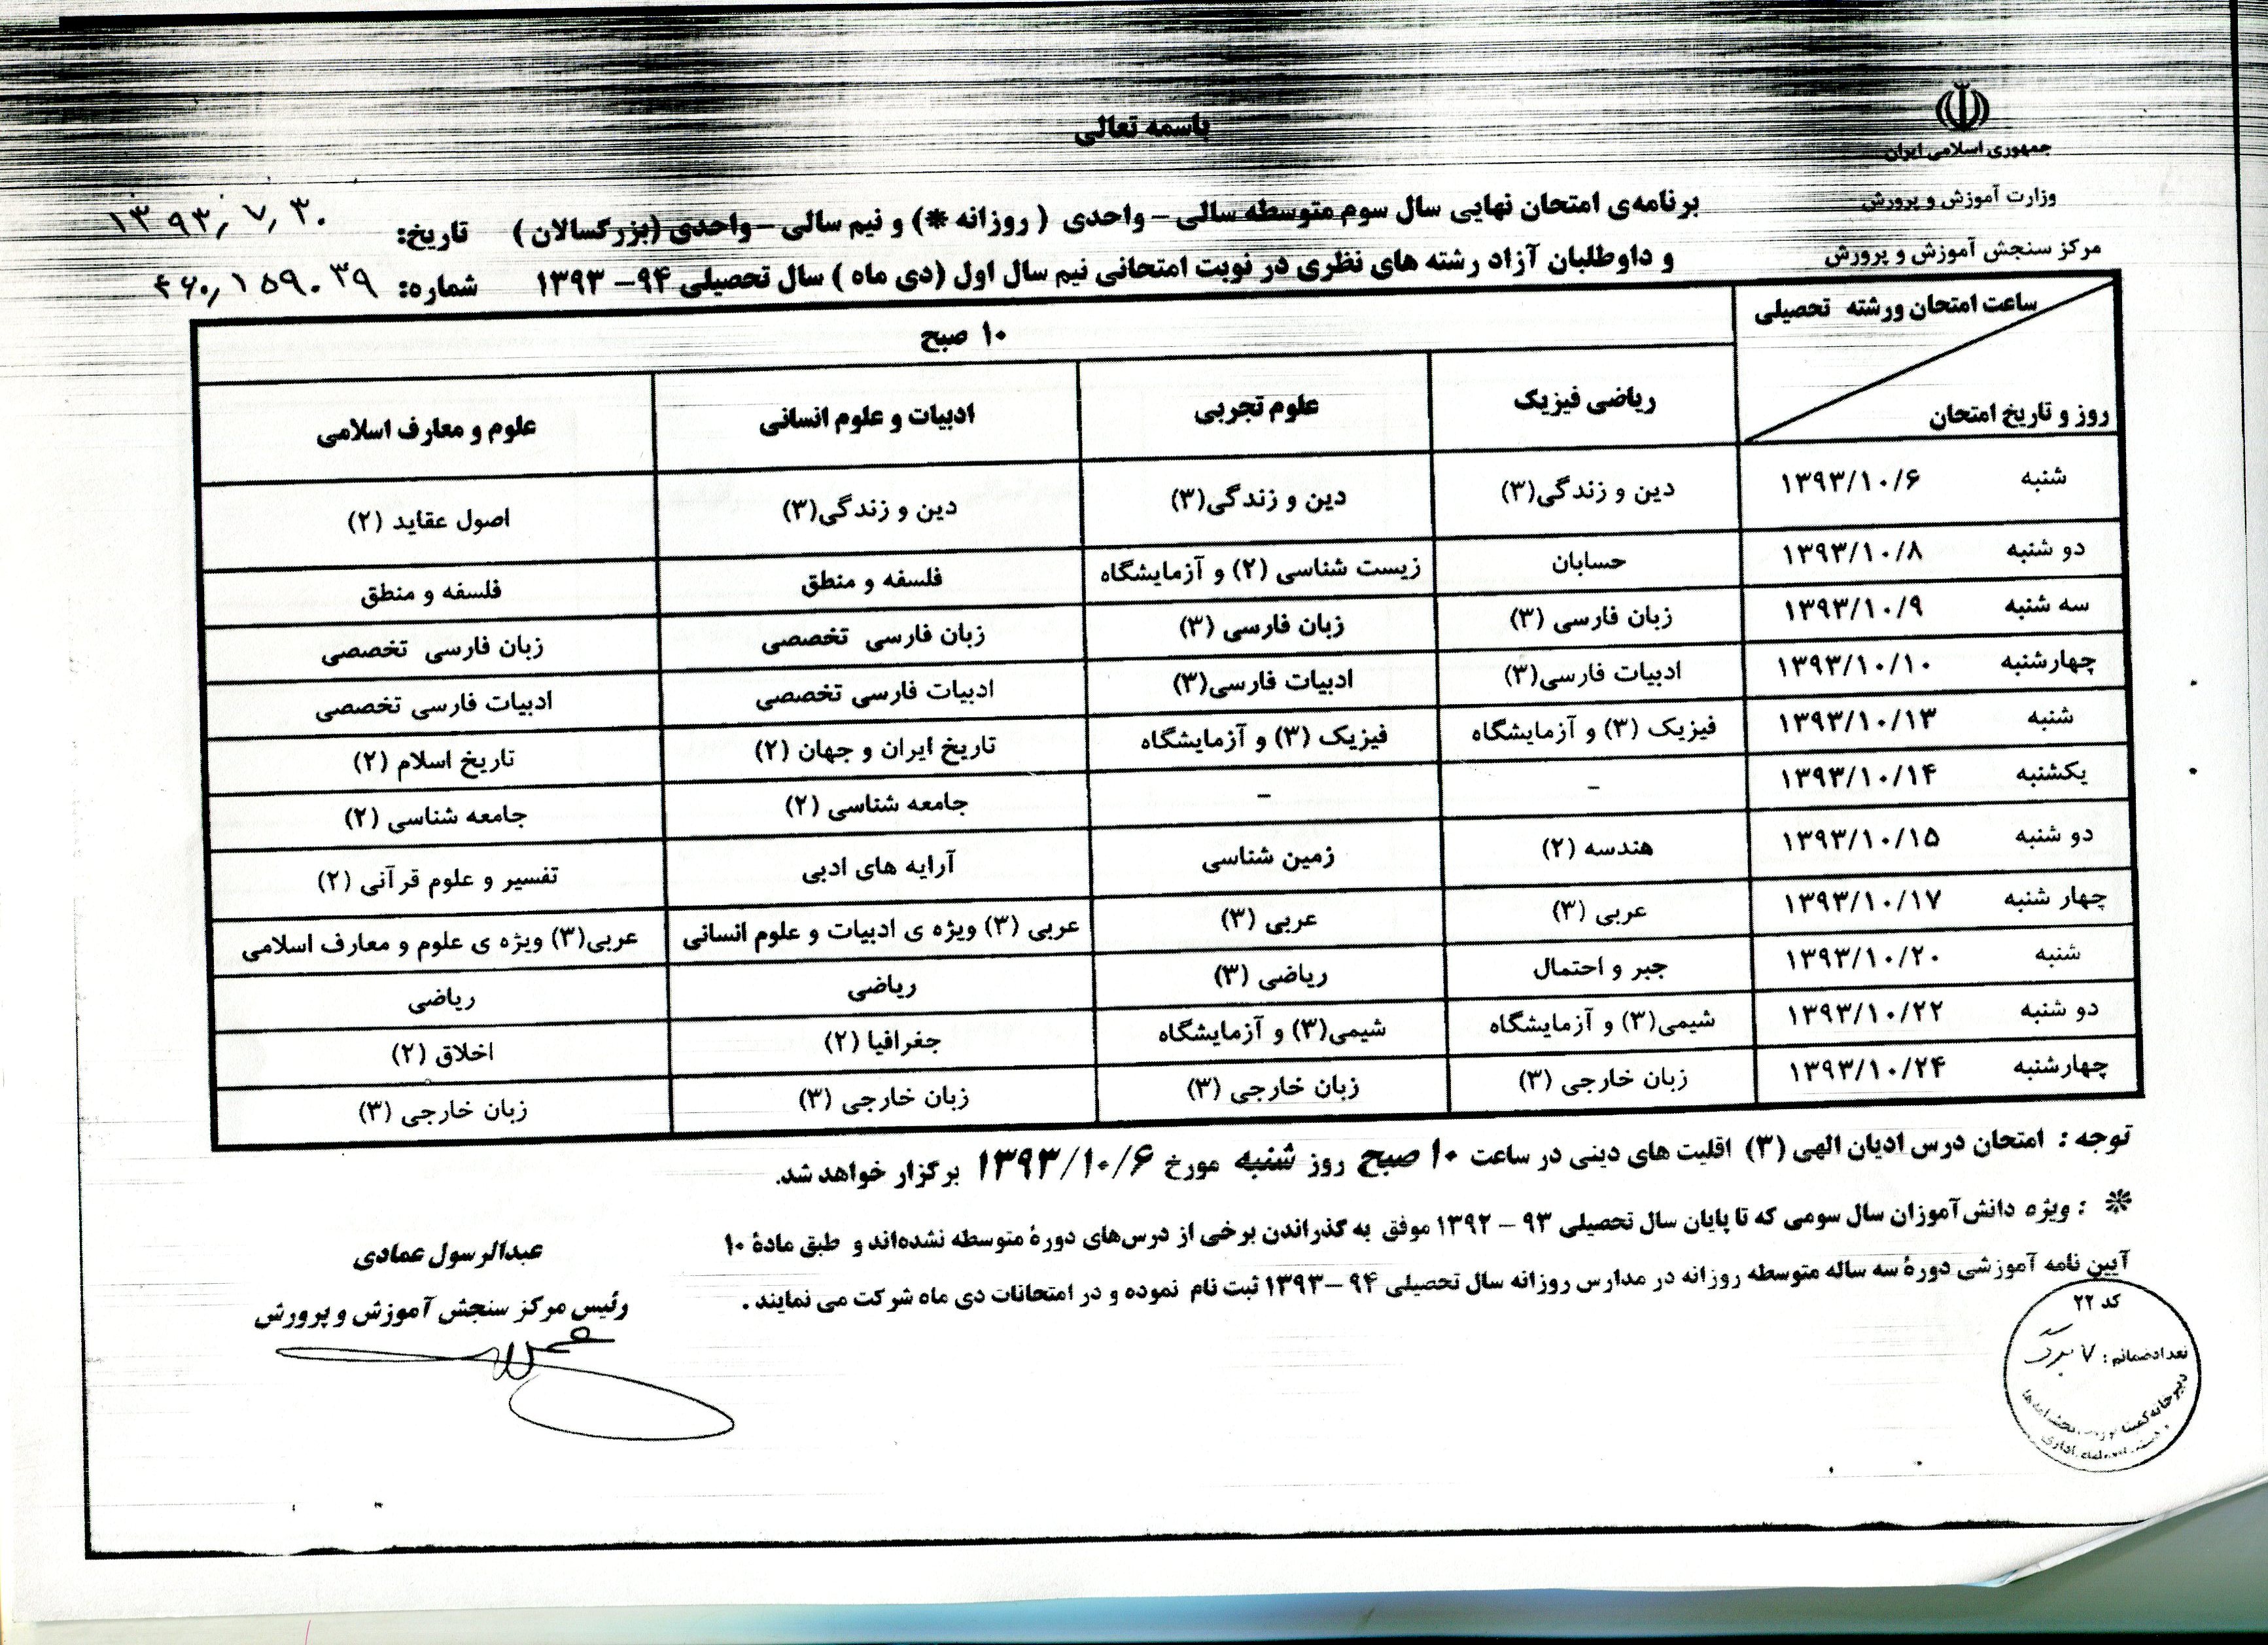 باسمه تعالی
جمهوری اسلامی ایران
وزارت آموزش و پرورش
مرکز سنجش آموزش و پرورش
برنامه‌ی امتحان نهایی سال سوم متوسطه سالی – واحدی ( روزانه *) و نیم سالی – واحدی (بزرگسالان )
و داوطلبان آزاد رشته های نظری در نوبت امتحانی نیم سال اول (دی ماه ) سال تحصیلی ۹۴- ۱۳۹۳
تاریخ: ۱۳۹۳/۷/۳۰
شماره: ۴۶۰/۱۵۹۰۳۹
ساعت امتحان ورشته تحصیلی ۱۰ صبح
روز و تاریخ امتحان ریاضی فیزیک علوم تجربی ادبیات و علوم انسانی علوم و معارف اسلامی
شنبه ۱۳۹۳/۱۰/۶ دین و زندگی(۳) دین و زندگی(۳) دین و زندگی(۳) اصول عقاید (۲)
دو شنبه ۱۳۹۳/۱۰/۸ حسابان زیست شناسی (۲) و آزمایشگاه فلسفه و منطق فلسفه و منطق
سه شنبه ۱۳۹۳/۱۰/۹ زبان فارسی (۳) زبان فارسی (۳) زبان فارسی تخصصی زبان فارسی تخصصی
چهارشنبه ۱۳۹۳/۱۰/۱۰ ادبیات فارسی(۳) ادبیات فارسی(۳) ادبیات فارسی تخصصی ادبیات فارسی تخصصی
شنبه ۱۳۹۳/۱۰/۱۳ فیزیک (۳) و آزمایشگاه فیزیک (۳) و آزمایشگاه تاریخ ایران و جهان (۲) تاریخ اسلام (۲)
یکشنبه ۱۳۹۳/۱۰/۱۴ - - جامعه شناسی (۲) جامعه شناسی (۲)
دو شنبه ۱۳۹۳/۱۰/۱۵ هندسه (۲) زمین شناسی آرایه های ادبی تفسیر و علوم قرآنی (۲)
چهار شنبه ۱۳۹۳/۱۰/۱۷ عربی (۳) عربی (۳) عربی (۳) ویژه ی ادبیات و علوم انسانی عربی(۳) ویژه ی علوم و معارف اسلامی
شنبه ۱۳۹۳/۱۰/۲۰ جبر و احتمال ریاضی (۳) ریاضی ریاضی
دو شنبه ۱۳۹۳/۱۰/۲۲ شیمی(۳) و آزمایشگاه شیمی(۳) و آزمایشگاه جغرافیا (۲) اخلاق (۲)
چهارشنبه ۱۳۹۳/۱۰/۲۴ زبان خارجی (۳) زبان خارجی (۳) زبان خارجی (۳) زبان خارجی (۳)
توجه : امتحان درس ادیان الهی (۳) اقلیت های دینی در ساعت ۱۰ صبح روز شنبه مورخ ۱۳۹۳/۱۰/۶ برگزار خواهد شد.
* : ویژه دانش‌آموزان سال سومی که تا پایان سال تحصیلی ۹۳ – ۱۳۹۲ موفق به گذراندن برخی از درس‌های دورهٔ متوسطه نشده‌اند و طبق مادهٔ ۱۰
آیین نامه آموزشی دورهٔ سه ساله متوسطه روزانه در مدارس روزانه سال تحصیلی ۹۴ –۱۳۹۳ ثبت نام نموده و در امتحانات دی ماه شرکت می نمایند .
عبدالرسول عمادی
رئیس مرکز سنجش آموزش و پرورش
کد ۲۲
تعداد ضمائم : ۷ برگ